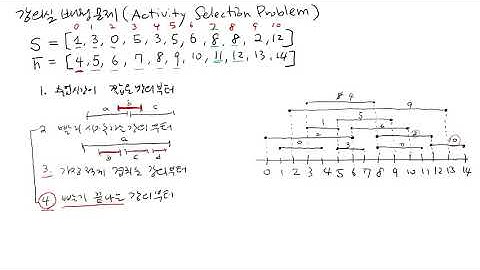 강의실 배정 문제 (Activity Selection Problem)
0 1 2 3 4 5 6 7 8 9 10
S = [1, 3, 0, 5, 3, 5, 6, 8, 8, 2, 12]
F = [4, 5, 6, 7, 8, 9, 10, 11, 12, 13, 14]
1. 수업시간이 짧은 강의부터
a b c
2. 빨리 시작하는 강의부터
a
b c d
3. 가장 적게 겹치는 강의부터
4. 빨리 끝나는 강의부터
9
1 5
3
10
0 1 2 3 4 5 6 7 8 9 10 11 12 13 14